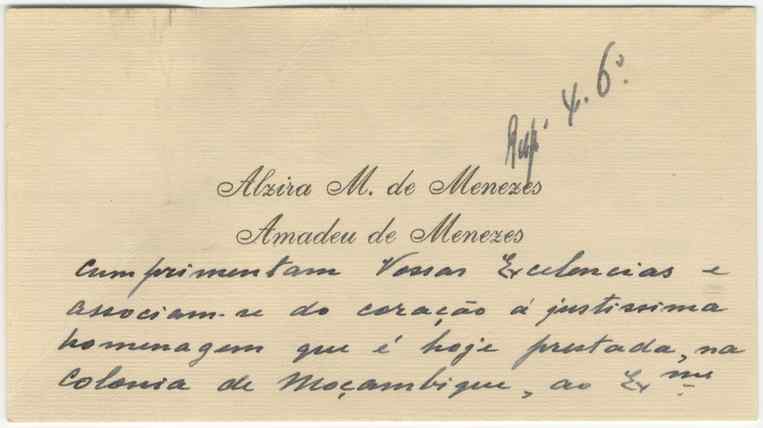 Resp. 4. 6º.
Alzira M. de Menezes
Amadeu de Menezes
cumprimentam Vossas Excelencias e
associam-se do coração á justissima
homenagem que é hoje prestada, na
colonia de Moçambique, ao Exmo